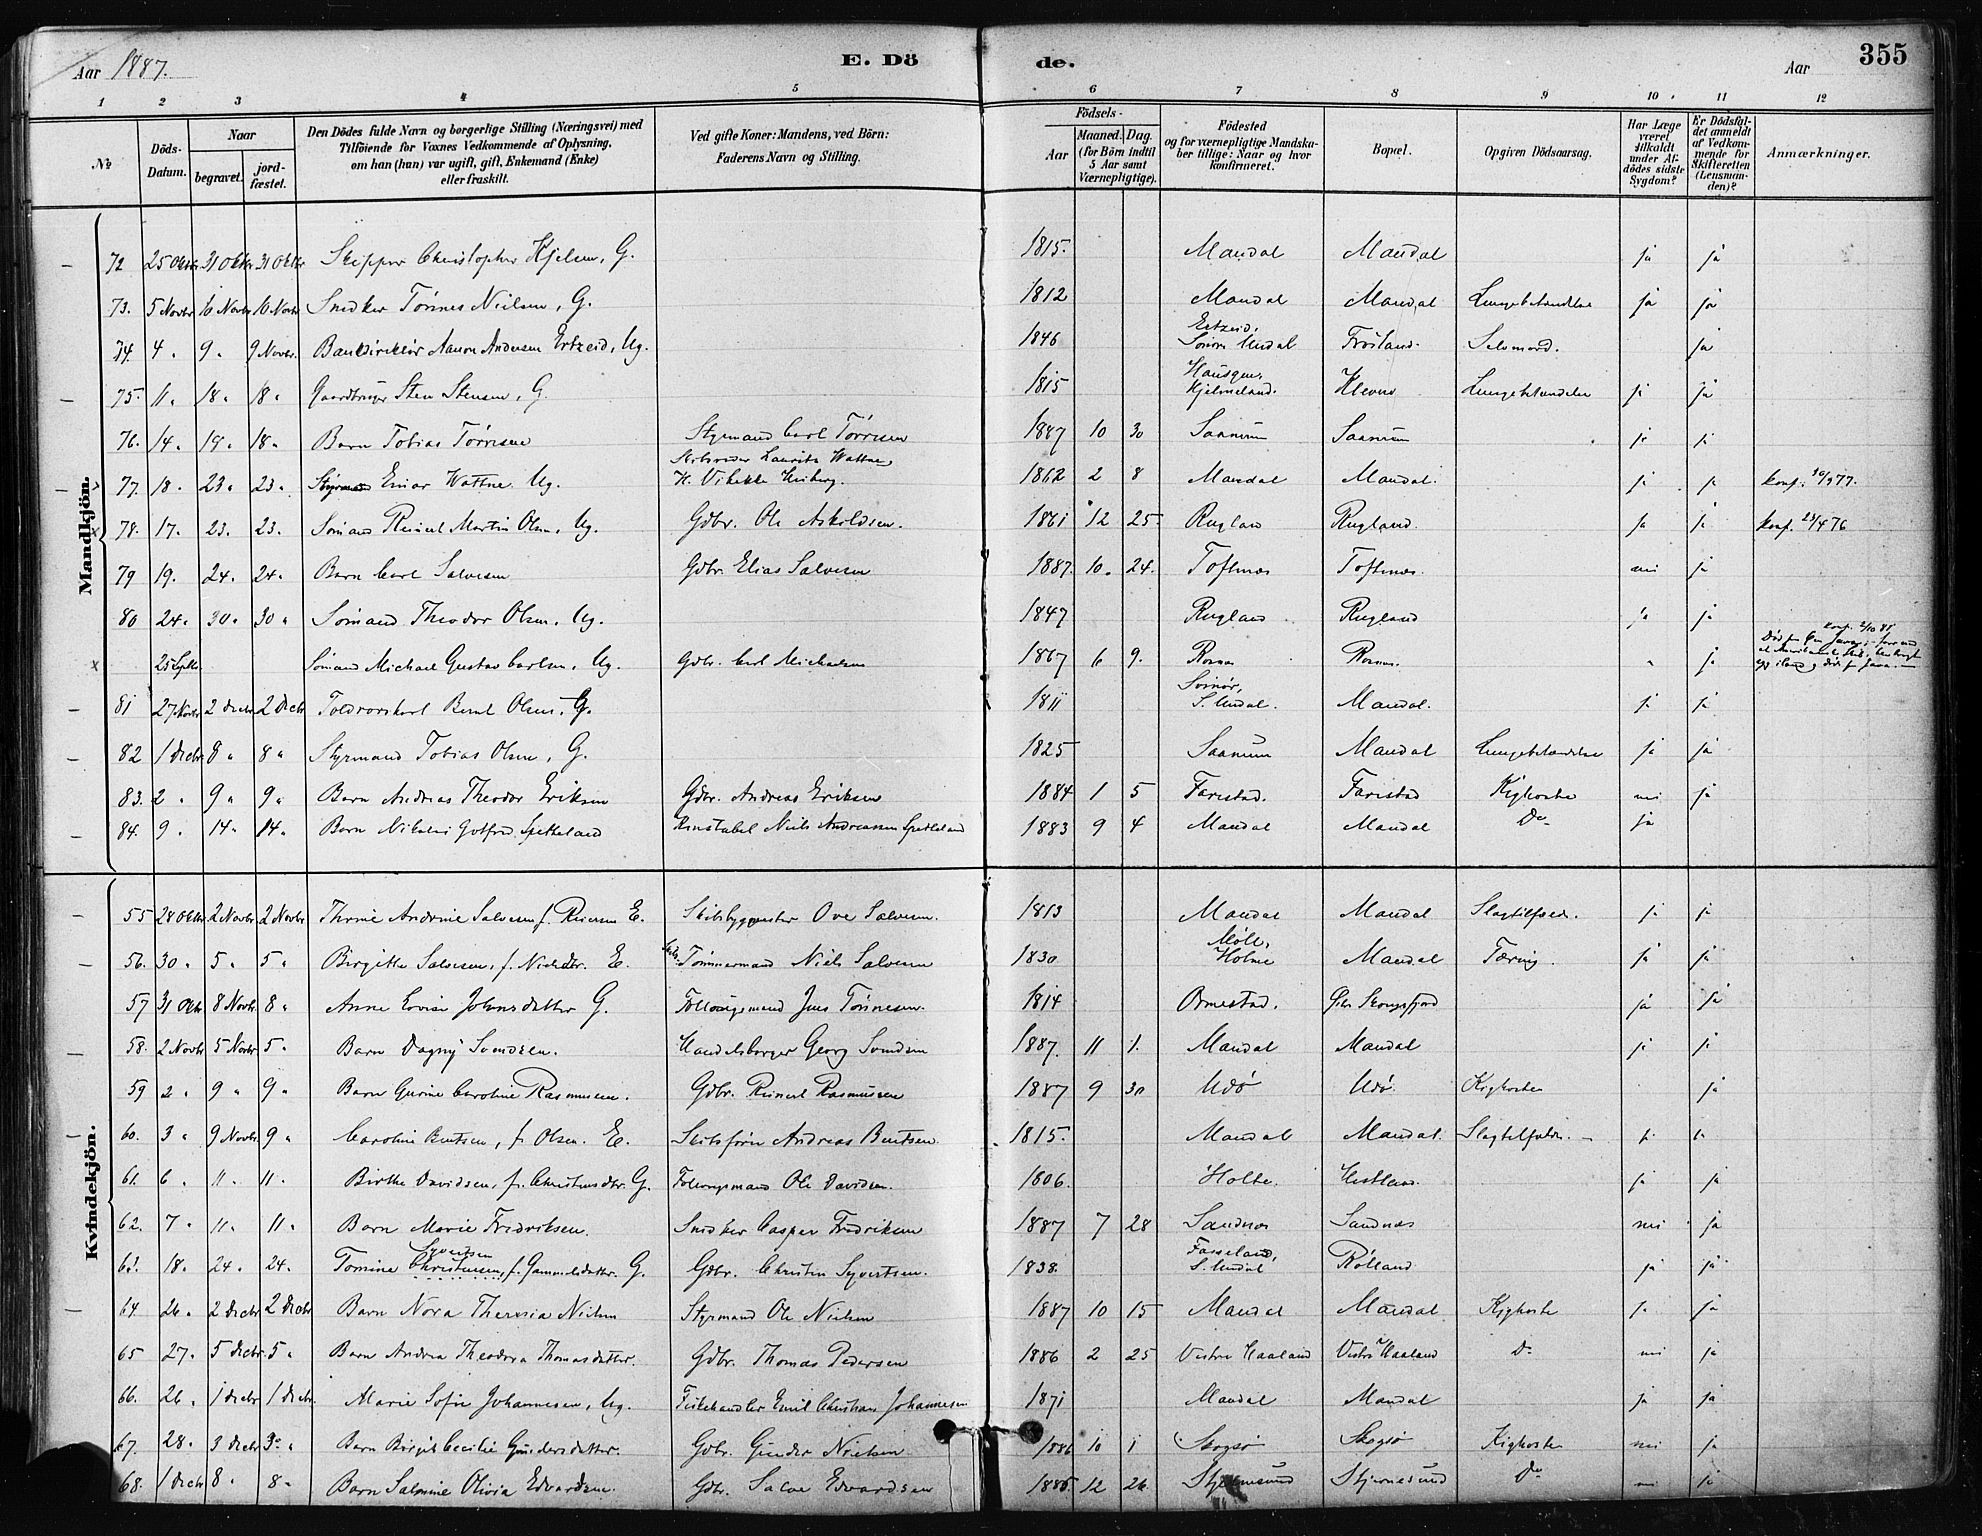 Aar 1887.
E. Döde.
Aar
355
1 2 3 4 5 6 7 8 9 10 11 12
No
Döds-Datum.
Naar begravet. jordfæstet.
Den Dödes fulde Navn og borgerlige Stilling (Næringsvei) med Tilföiende for Voxnes Vedkommende af Oplysning, om han (hun) var ugift, gift, Enkemand (Enke) eller fraskilt.
Ved gifte Koner: Mandens, ved Börn: Faderens Navn og Stilling.
Födsels- Aar Maaned. Dag. (for Börn indtil 5 Aar samt Værnepligtige).
Födested og for værnepligtige Mandskaber tillige: Naar og hvor konfirmeret.
Bopæl.
Opgiven Dödsaarsag.
Har Læge været tilkaldt under Afdödes sidste Sygdom?
Er Dödsfaldet anmeldt af Vedkommende for Skifteretten (Lensmanden)?
Anmærkninger.
Mandkjön.
72 25 Oktbr 31 Oktbr 31 Oktbr Skipper Christopher Kjelsen, G. 1815. Mandal Mandal ja ja
73. 5 Novbr 10 Novbr 10 Novbr Snedker Tönnes Nielsen, G. 1812 Mandal Mandal Lungebetændelse ja ja
74. 4 " 9 " 9 Novbr. Bankdirektör Aanon Andersen Ertzeid, Ug. 1846 Ertzeid, Söndre Undal Fröiland. Selvmord. ja
75. 11 " 18 " 18 " Gaardbruger Sten Stensen, G. 1815 Kjelmeland. Kleven Lungebetændelse ja ja
76. 14 " 19 " 18 " Barn Tobias Törresen Styrmand Carl Törresen 1887 10 30 Saanum Saanum ja ja
77. 18 " 23 " 23 " Einar Wattne Ug. Laurits Wattne 1862 2 8 Mandal Mandal. ja ja konf. 77.
78. 17 " 23. 23. Sömand Reinert Martin Olsen, Ug. Gdbr. Ole Askildsen. 1861 12 25. Rugland Rugland. ja ja konf. 76
79 19. 24 " 24 " Barn Carl Salvesen Gdbr. Elias Salvesen 1887. 10. 24. Toftenes Toftenes. nei ja
80 24 " 30 " 30 " Sömand Theodor Olsen, Ug. 1847 Rugland Rugland ja ja
25 Septbr Sömand Michael Gustav Carlsen, Ug. Gdbr. Carl Michaelsen 1867 6 9. Rosnes Rosnes. " ja
81 27 Novbr 2 Decbr 2 Decbr Toldrorskarl Bernt Olsen, G. 1811 Svinör, S. Undal. Mandal. ja ja
82 1 Decbr 8 " 8 " Styrmand Tobias Olsen, G. 1825 Saanum Mandal Lungebetændelse ja ja
83. 2 " 9 " 9 " Barn Andreas Theodor Eriksen Gdbr. Andreas Eriksen 1884 1 5 Farestad. Farestad Kighoste nei ja
84. 9 " 14 " 14 " Barn Nikolai Gotfred Spetteland Konstabel Niels Andreassen Spetteland 1883 9 4 Mandal Mandal Do ja
Kvindekjön.
55 28 Oktbr 2 Novbr 2 Novbr Thrine Andrine Salvesen f. Reiersen E. Skibsbygmester Ove Salvesen. 1813 Mandal Mandal Slagtilfælde. ja ja
56. 30 " 5 " 5 " Birgitte Salvesen, f. Nielsdtr. E. Tömmermand Niels Salvesen 1830 Möll, Holme Mandal Tæring. ja ja
57 31 Oktbr 8 Novbr. 8 " Anne Lovise Johnsdatter G. Föderaadsmand Jens Tönnesen. 1814 Ormestad. Skogsfjord ja ja
58. 2 Novbr 5 Novbr 5 " Barn Dagny Svendsen. Handelsborger Georg Svendsen 1887. 11 1. Mandal Mandal ja ja
59 2 " 9 " 9 " Barn Gurine Caroline Rasmussen. Gdbr. Reinert Rasmussen 1887 9 30 Udö Udö. Kighoste ja
60. 3 " 9 Novbr. 9 " Caroline Berntsen, f. Olsen. E. Skibsförer Andreas Berntsen 1815. Mandal Mandal. Slagtilfælde. ja ja
61. 6 " 11 " 11 " Birthe Davidsen, f. Christensdtr. G. Ole Davidsen. 1806. Holte. ja ja
62. 7 " 11 " 11 " Barn Marie Fredriksen. Snedker Casper Fredriksen 1887 7 28 Sandnes Sandnes nei ja
63. 18 " 24 " 24 " Tomine Christensen Syvertsen f. Gammelsdatter. G. Gdbr. Christen Syvertsen. 1838. Fasseland, S. Undal Röiland ja ja
64. 26 " 2 Decbr. 2 Decbr Barn Nora Theresia Nielsen Styrmand Ole Nielsen 1887 10 15 Mandal Mandal Kighoste ja ja
65 27 " 5 Decbr. 5 " Barn Andrea Theodora Thomasdatter. Gdbr. Thomas Pedersen 1886 2 25 Vestre Haaland Vestre Haaland Do nei ja
66. 26 " 1 Decbr 1 Decbr. Marie Sofie Johannesen, Ug. Fiskehandler Emil Christian Johannesen 1871 Mandal Mandal ja ja
67. 28 " 3 Decbr 3 " Barn Birgit Cecilie Gundersdatter. Gdbr. Gunder Nielsen 1886 10 1 Skogsö Skogsö Kighoste nei ja
68. 1 Decbr 8 " 8 " Barn Salomine Olivia Edvardsen. Gdbr. Salve Edvardsen 1885 12 26. Stjernesund Stjernesund Do nei ja